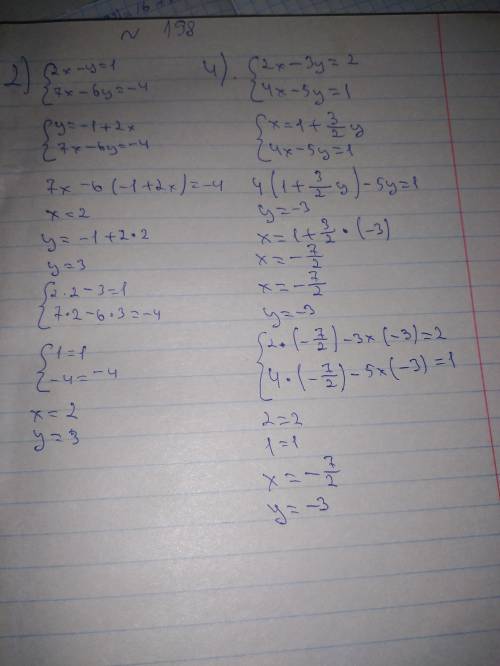 N 198
2) { 2x-y=1
7x-6y=-4
{ y=-1+2x
7x-6y=-4
7x-6(-1+2x)=-4
x=2
y=-1+2·2
y=3
{ 2·2-3=1
7·2-6·3=-4
{ 1=1
-4=-4
x=2
y=3
4). { 2x-3y=2
4x-5y=1
{ x=1+3/2y
4x-5y=1
4(1+3/2y)-5y=1
y=-3
x=1+3/2·(-3)
x=-7/2
x=-7/2
y=-3
{ 2·(-7/2)-3x(-3)=2
4·(-7/2)-5x(-3)=1
2=2
1=1
x=-7/2
y=-3